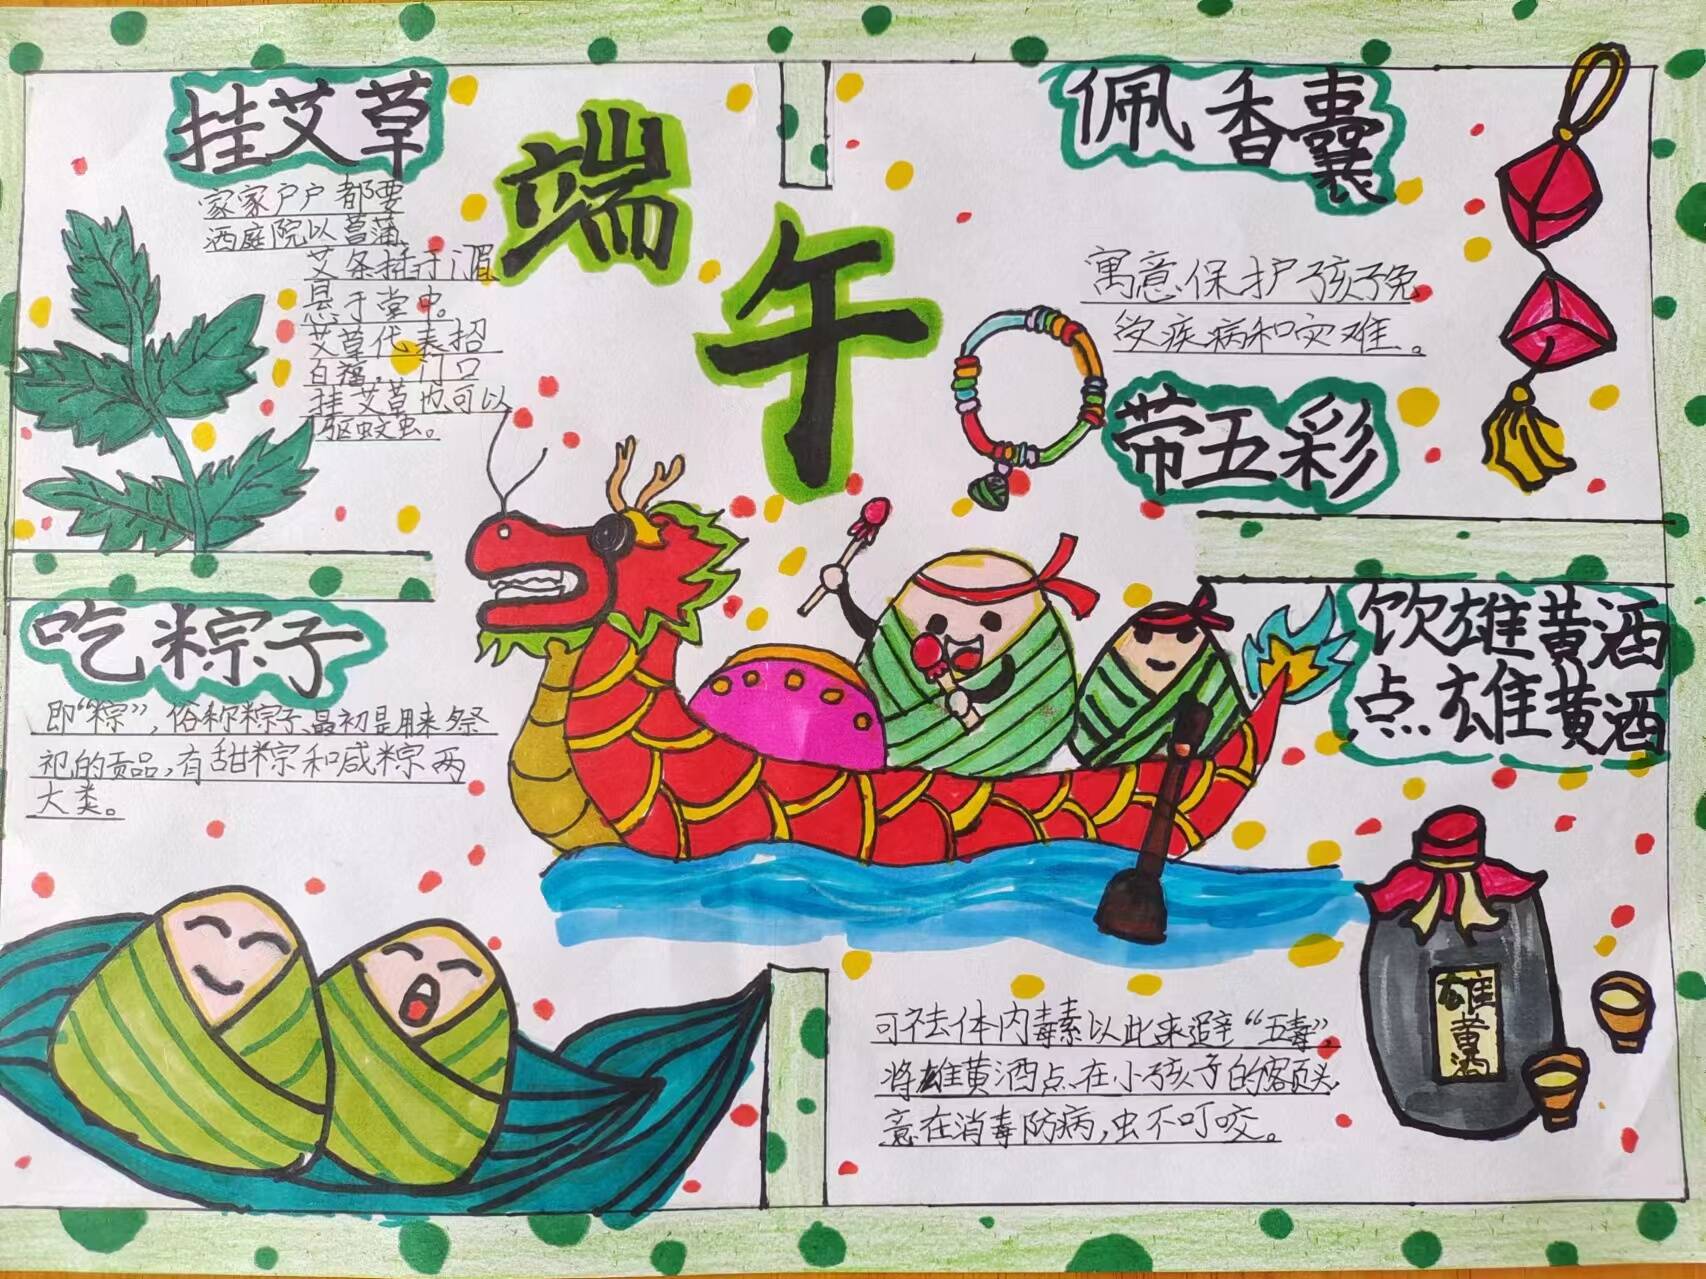 挂艾草
家家户户都要
洒庭院以菖蒲
艾条插于湄
悬于堂中。
艾草代表招
百福,门口
挂艾草也可以
驱蚊虫。
端午
佩香囊
寓意保护孩子免
受疾病和灾难。
带五彩
吃粽子
即“粽”,俗称粽子、最初是用来祭
祀的贡品,有甜粽和咸粽两
大类。
饮雄黄酒
点雄黄酒
可祛体内毒素以此来避“五毒”,
将雄黄酒点在小孩子的额头
意在消毒防病,虫不叮咬。
雄黄酒